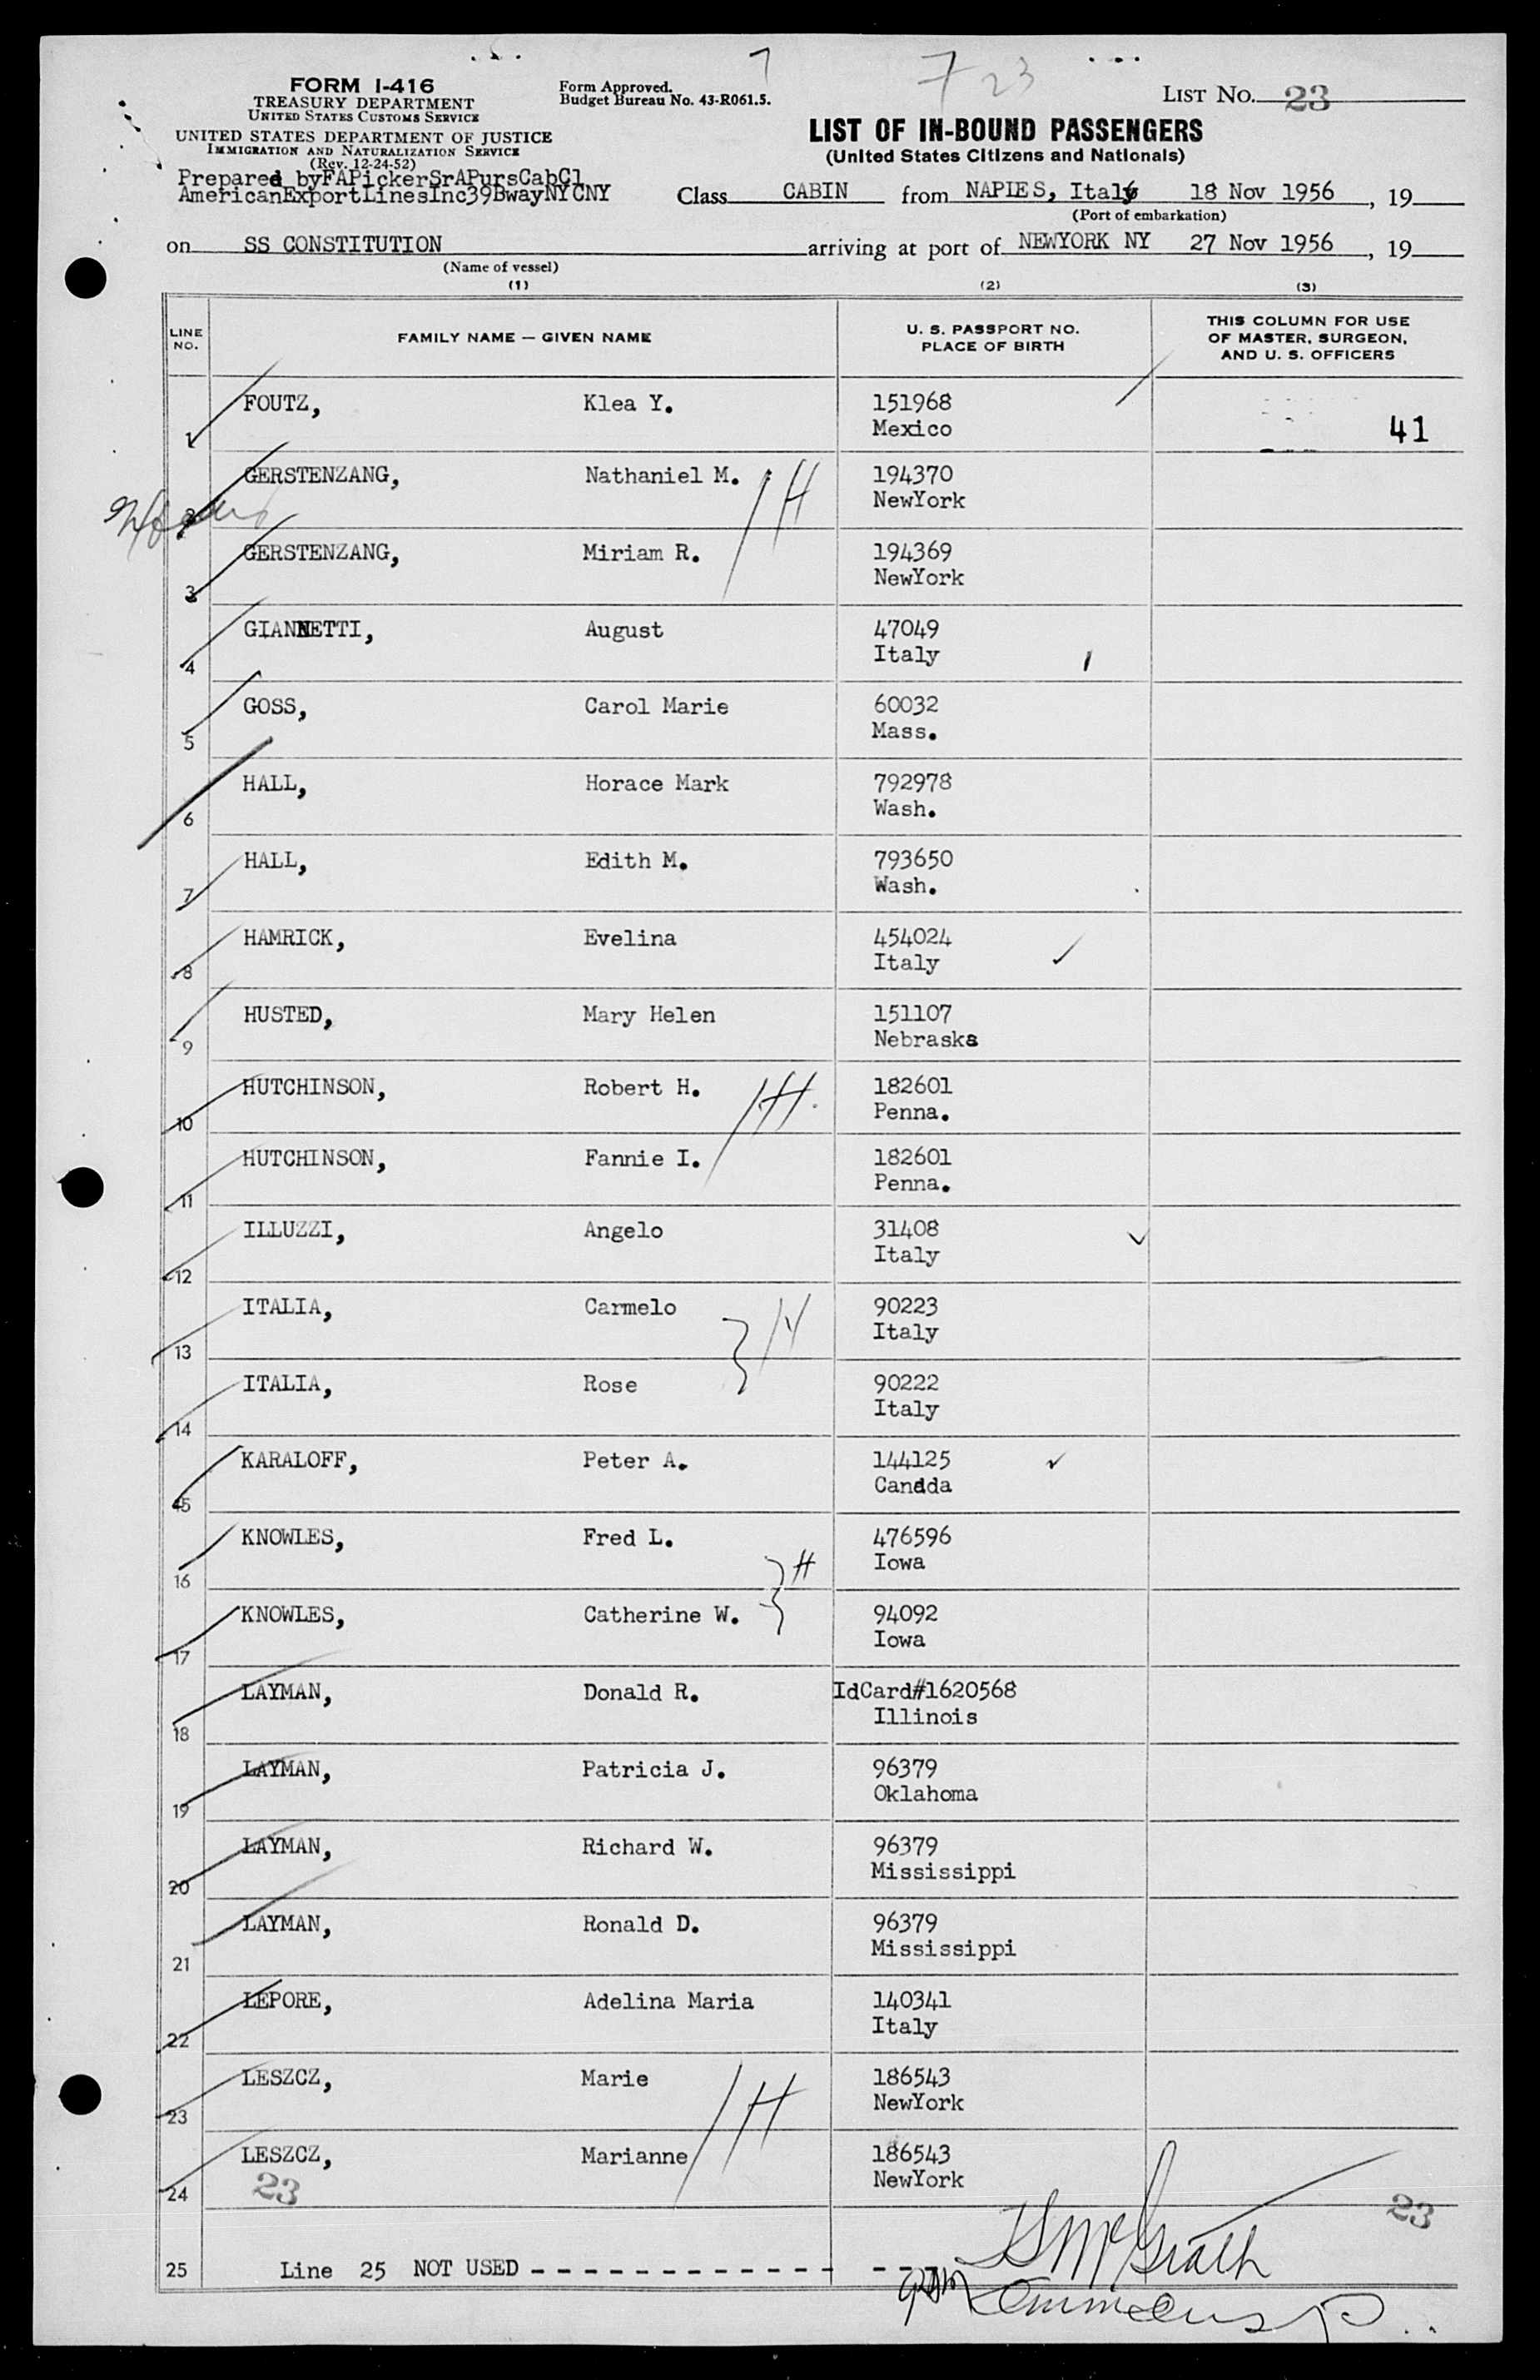 7
7 23
FORM I-416
TREASURY DEPARTMENT
UNITED STATES CUSTOMS SERVICE
UNITED STATES DEPARTMENT OF JUSTICE
IMMIGRATION AND NATURALIZATION SERVICE
(Rev. 12-24-52)
Form Approved.
Budget Bureau No. 43-R061.5.
LIST NO. 23
LIST OF IN-BOUND PASSENGERS
(United States Citizens and Nationals)
Prepared byFAPickerSrAPursCabCl
AmericanExportLinesInc39BwayNYCNY
Class CABIN from NAPLES, Italy 18 Nov 1956, 19
(Port of embarkation)
on SS CONSTITUTION arriving at port of NEWYORK NY 27 Nov 1956, 19
(Name of vessel)
(1) (2) (3)
LINE NO.
FAMILY NAME — GIVEN NAME
U. S. PASSPORT NO.
PLACE OF BIRTH
THIS COLUMN FOR USE
OF MASTER, SURGEON,
AND U. S. OFFICERS
1 FOUTZ, Klea Y. 151968
Mexico 41
2 GERSTENZANG, Nathaniel M. 194370
NewYork
H
3 GERSTENZANG, Miriam R. 194369
NewYork
4 GIANNETTI, August 47049
Italy
5 GOSS, Carol Marie 60032
Mass.
6 HALL, Horace Mark 792978
Wash.
7 HALL, Edith M. 793650
Wash.
8 HAMRICK, Evelina 454024
Italy
9 HUSTED, Mary Helen 151107
Nebraska
10 HUTCHINSON, Robert H. 182601
Penna.
H
11 HUTCHINSON, Fannie I. 182601
Penna.
12 ILLUZZI, Angelo 31408
Italy
13 ITALIA, Carmelo 90223
Italy
H
14 ITALIA, Rose 90222
Italy
15 KARALOFF, Peter A. 144125
Canada
16 KNOWLES, Fred L. 476596
Iowa
H
17 KNOWLES, Catherine W. 94092
Iowa
18 LAYMAN, Donald R. IdCard#1620568
Illinois
19 LAYMAN, Patricia J. 96379
Oklahoma
20 LAYMAN, Richard W. 96379
Mississippi
21 LAYMAN, Ronald D. 96379
Mississippi
22 LEPORE, Adelina Maria 140341
Italy
23 LESZCZ, Marie 186543
NewYork
H
24 LESZCZ, Marianne 186543
NewYork
23 23
25 Line 25 NOT USED - - - - - - - - - - - - - - - -